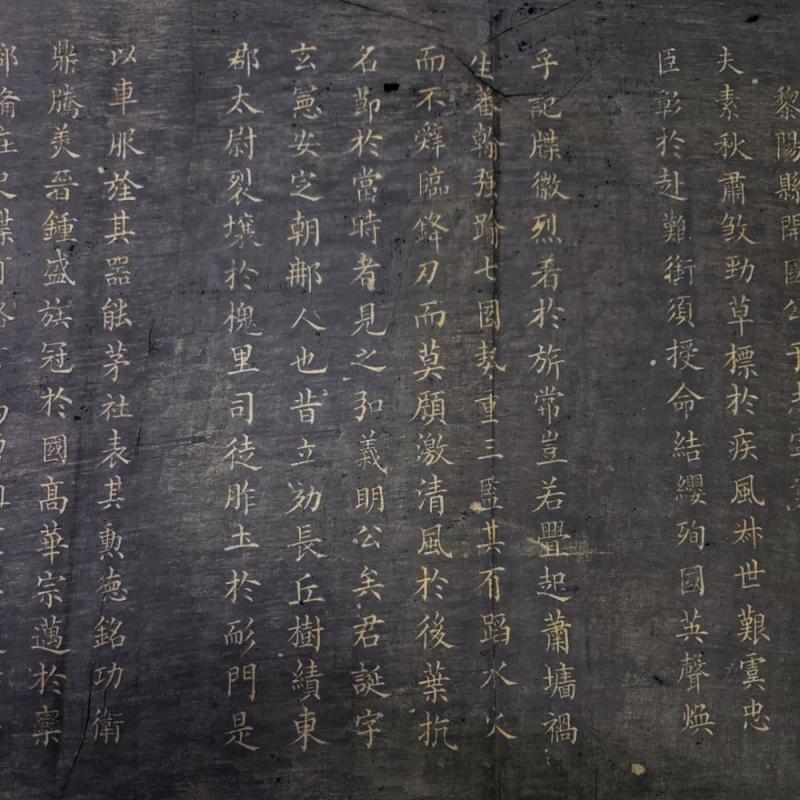 黎陽縣開國公于志寧
夫素秋肅煞勁草標於疾風叔世艱虞忠
臣彰於赴難銜須授命結纓殉國英聲煥
乎記牒徽烈著於旂常豈若舋起蕭墻禍
生蕃翰强踰七國勢重三監其有蹈水火
而不辭臨鋒刃而莫顧激清風於後葉抗
名節於當時者見之弘義明公矣君誕字
玄憲安定朝那人也昔立効長丘樹績東
郡太尉裂壤於槐里司徒胙土於耏門是
以車服旌其器能茅社表其勳德銘功衛
鼎騰美晉鍾盛族冠於國高華宗邁於欒